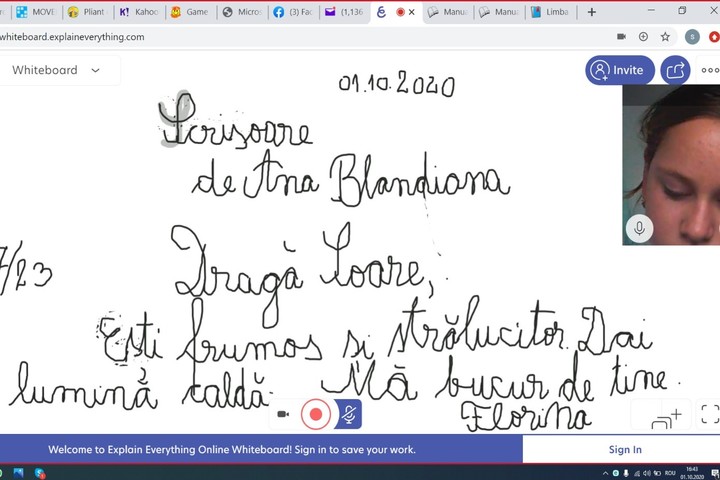 MOVI
Pliant
Kahoo
Game
Micros
(3) Fac
(1,136
Manu
Manu
Limba
whiteboard.explaineverything.com
Whiteboard
Invite
01.10.2020
Scrisoare
de Ana Blandiana
/23
Dragă Soare,
Ești frumos și strălucitor. Dai
lumină caldă. Mă bucur de tine.
Florina
Welcome to Explain Everything Online Whiteboard! Sign in to save your work.
Sign In
ROU
16:43
01.10.2020